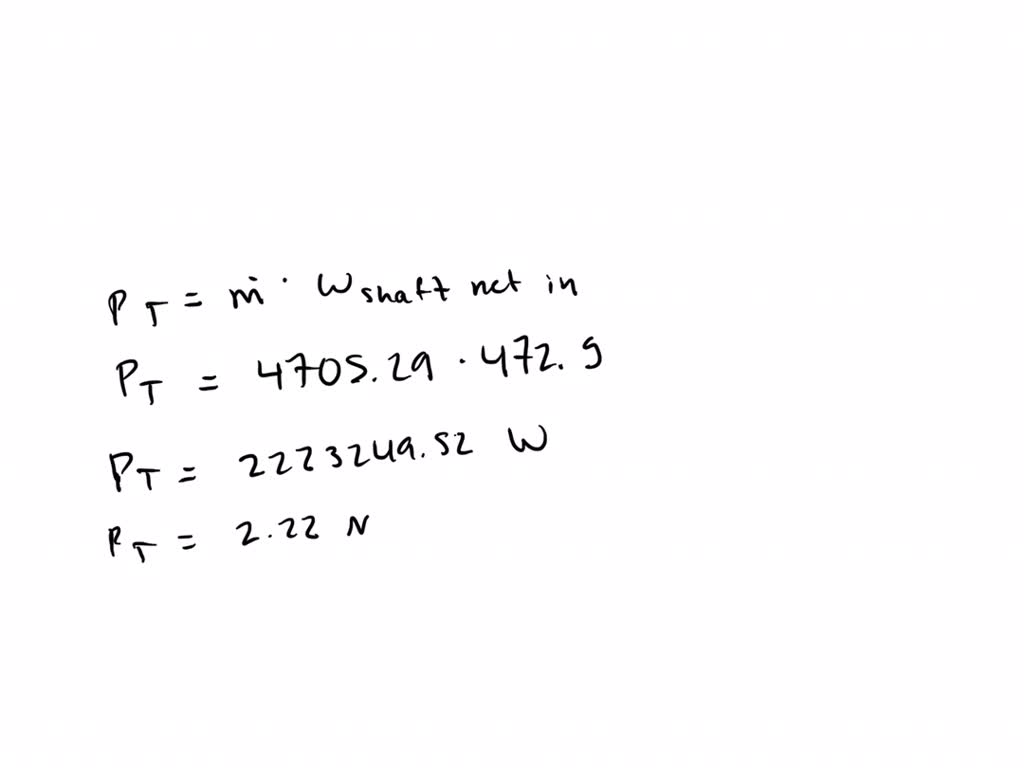 P_T = ṁ · W_shaft net in
P_T = 4705.29 · 472.9
P_T = 2223249.52 W
P_T = 2.22 N